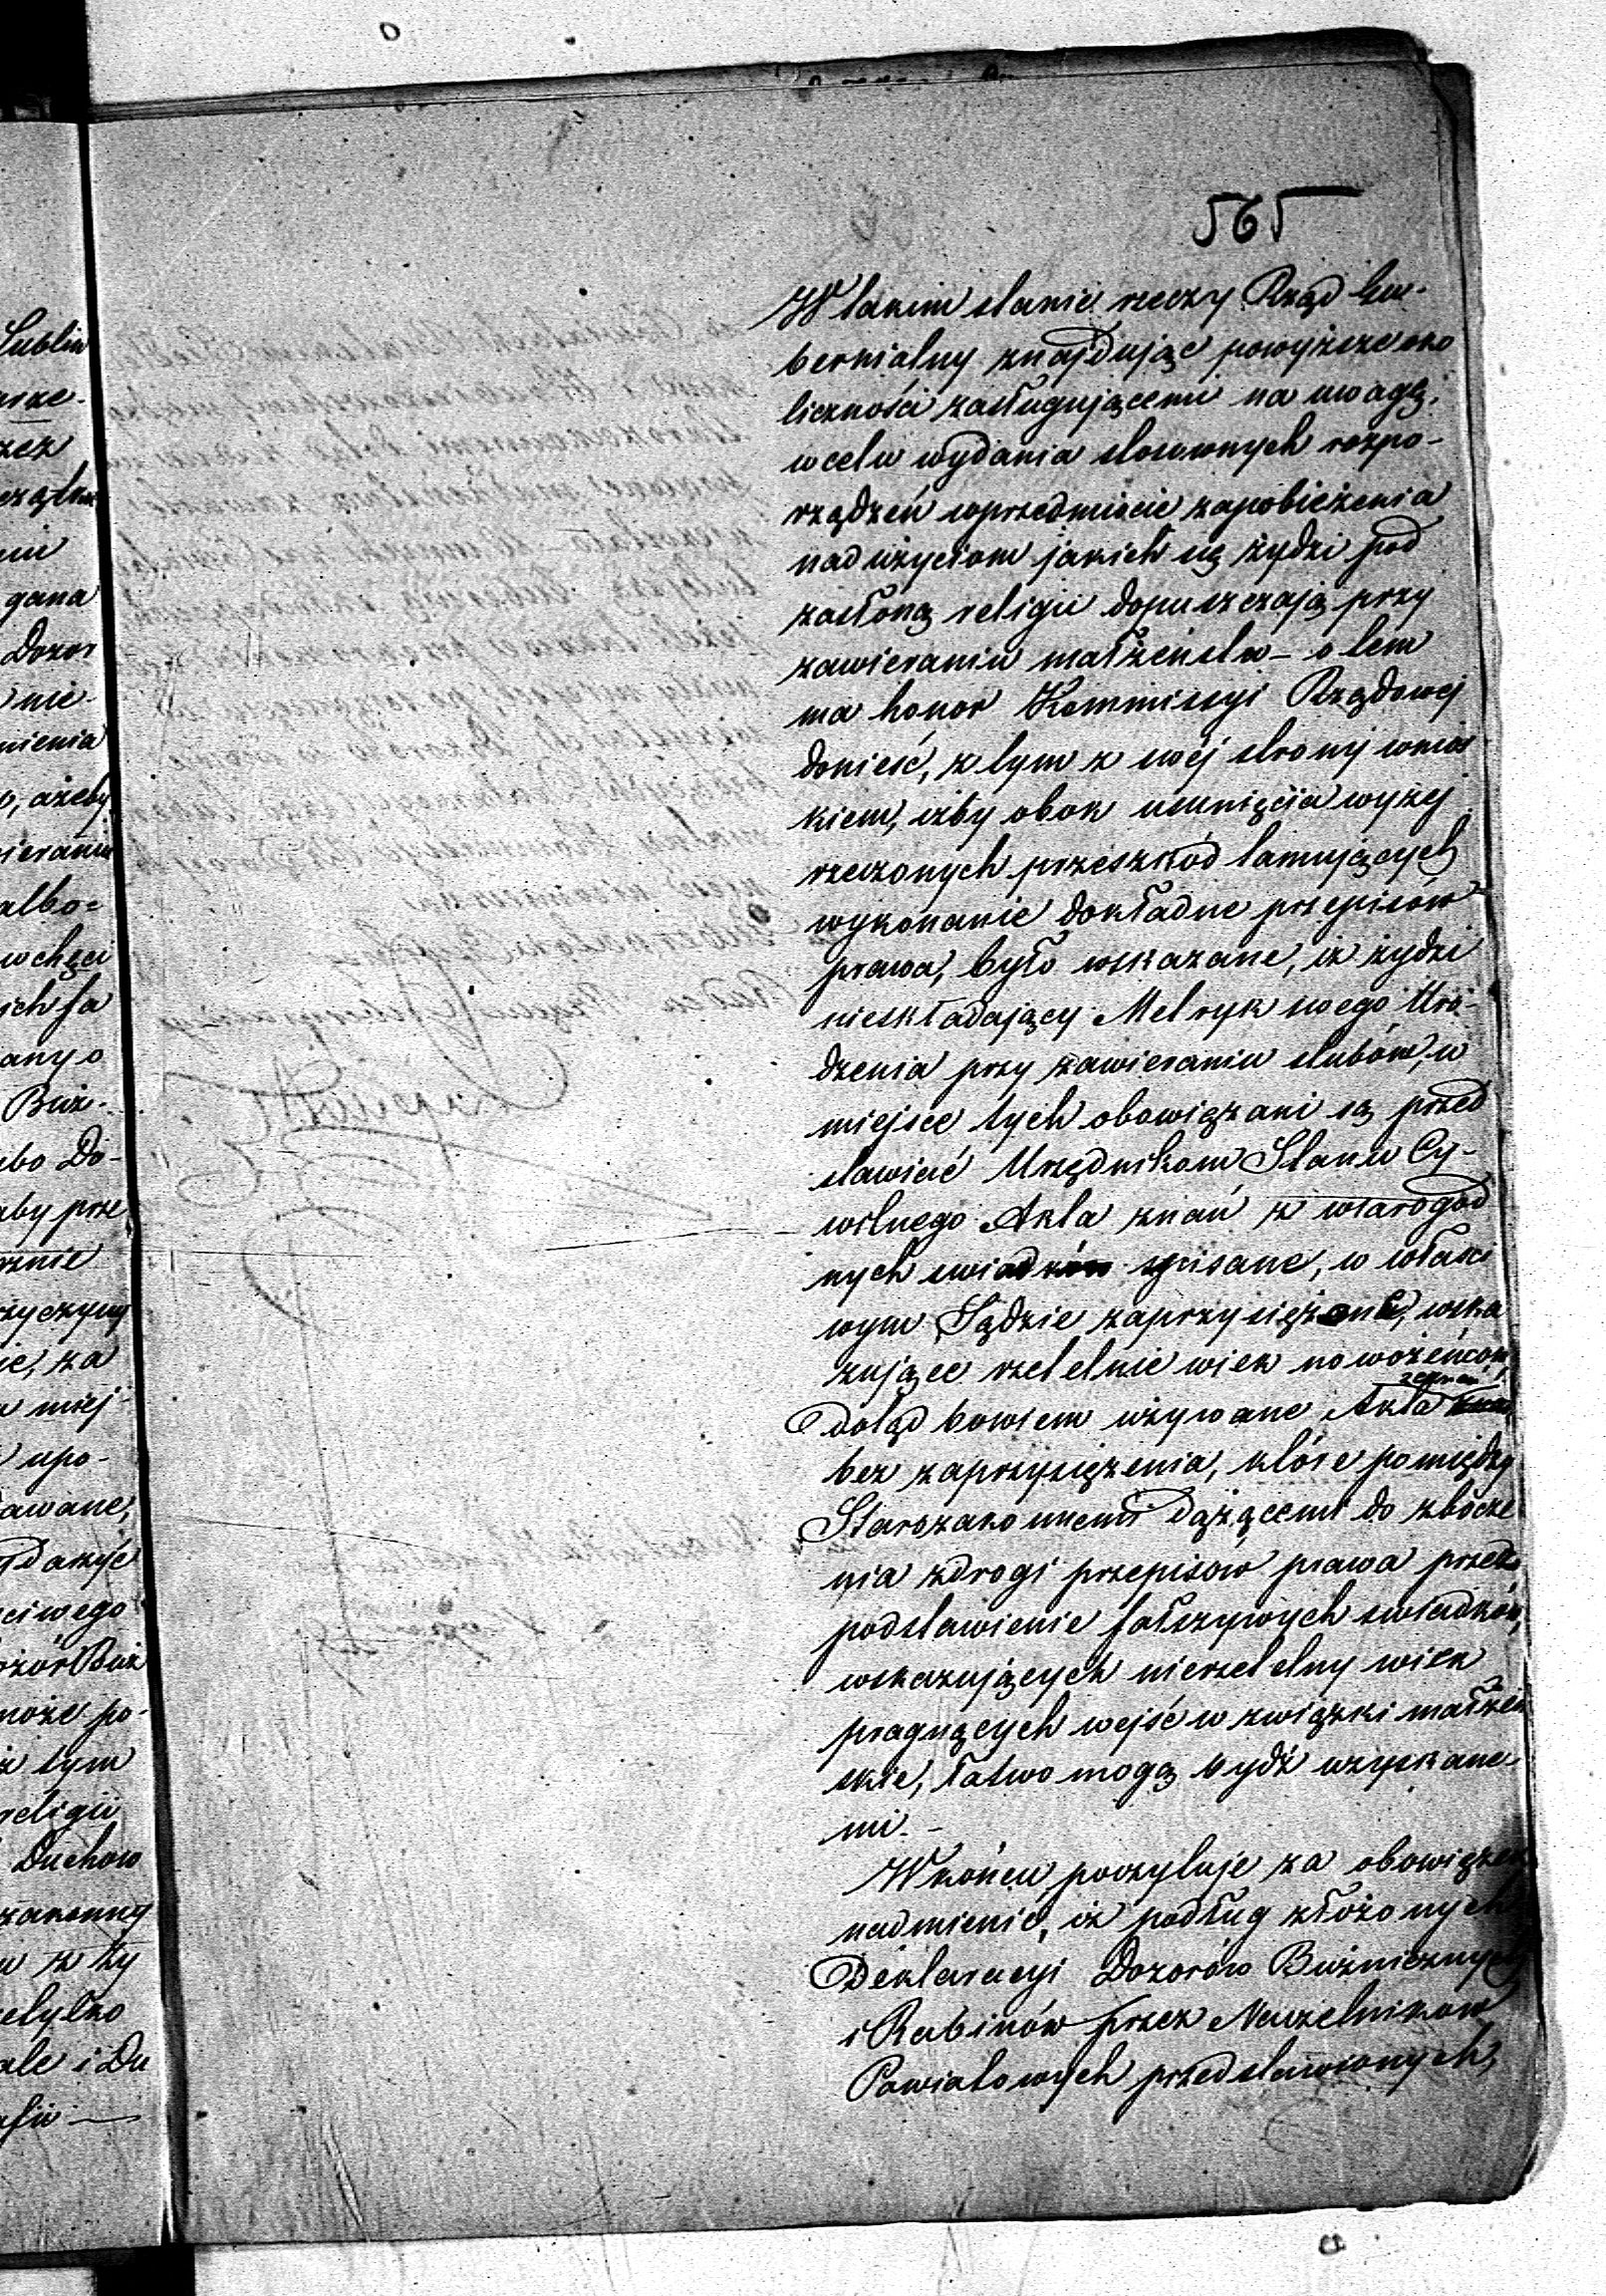 565
W takim stanie rzeczy Rząd Gu-
bernialny znajdując powyższe oko
liczności zasługującemi na uwagę,
w celu wydania stosownych rozpo-
rządzeń w przedmiocie zapobieżenia
nadużyciom jakich się żydzi pod
zasłoną religii dopuszczają przy
zawieraniu małżeństw – o tem
ma honor Kommissyi Rządowej
donieść, z tym z swej strony wnios
kiem, iżby obok usunięcia wyżej
rzeczonych przeszkód tamujących
wykonanie dokładne przepisów
prawa, było wskazane, iż żydzi
nieskładający Metryk swego Uro-
dzenia przy zawieraniu slubów, w
miejsce tych obowiązani są przed
stawiać Urzędnikom Stanu Cy-
wilnego Akta znań z wiarogod
nych swiadków spisane, w właści
wym Sądzie zaprzysiężone, wska
zujące rzetelnie wiek nowożeńców,
dotąd bowiem używane Akta zeznań
bez zaprzysiężenia, które pomiędzy
Starozakonnemi dążącemi do zbocze
nia z drogi przepisów prawa przez
podstawienie fałszywych swiadków,
wskazujących nierzetelny wiek
pragnących wejść w związki małżeń
skie, łatwo mogą bydź uzyskane-
mi. –
W końcu poczytuje za obowiązek
nadmienić, iż podług złożonych
Deklaracyi Dozorów Bużnicznych
i Rabinów przez Naczelników
Powiatowych przedstawionych,
Lublin
gana
Dozor
nie-
, ażeby
albo=
w chęci
ich fa
any o
Buż-
bo Do-
aby prze
ie, za
miej-
upo-
awane,
ciwego
ozór Buż
może po-
z tym
religii
Duchow
zakonny
ale i Du